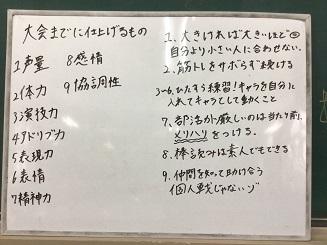 大会までに仕上げるもの
1声量
2体力
3演技力
4アドリブ力
5表現力
6表情
7精神力
8感情
9協調性
1、大きければ大きいほど◎
自分より小さい人に合わせない。
2、筋トレをサボらず続ける
3〜6、ひたすら練習!キャラを自分に
入れてキャラとして動くこと
7、部活が厳しいのは当たり前、
メリハリをつける。
8、棒読みは素人でもできる
9、仲間を知って助け合う
個人戦じゃないゾ